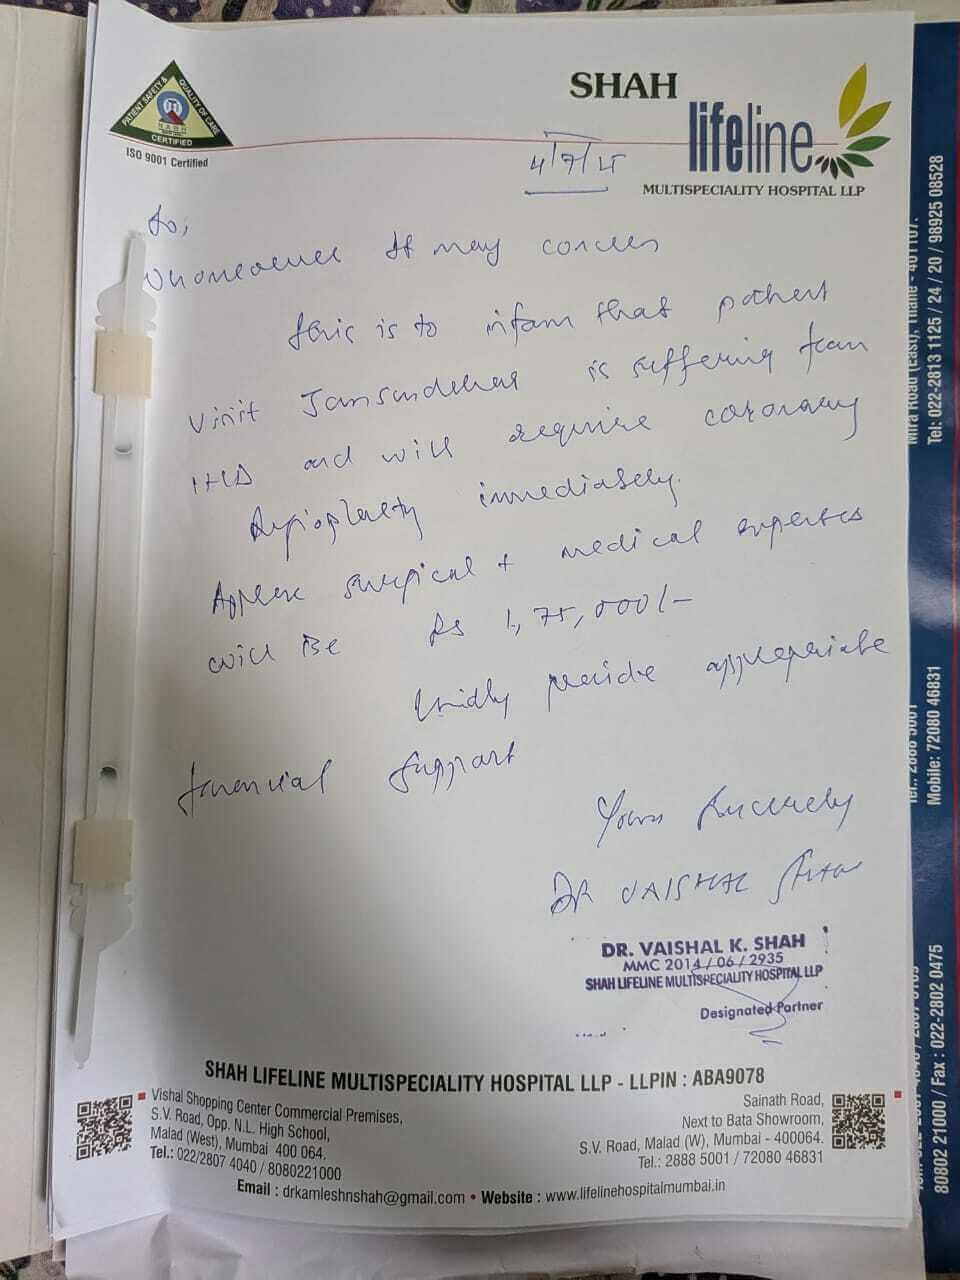 PATIENT SAFETY & QUALITY OF CARE
CERTIFIED
ISO 9001 Certified
SHAH
lifeline
MULTISPECIALITY HOSPITAL LLP
4/7/25
To,
It may concern
this is to inform that patient
Vinit is suffering from
IHD and will require coronary
Angioplasty immediately.
Approx surgical + medical expenses
will Be Rs 1,75,000/-
Kindly provide appropriate
financial support
Yours Sincerely
DR VAISHAL SHAH
DR. VAISHAL K. SHAH
MMC 2014/06/2935
SHAH LIFELINE MULTISPECIALITY HOSPITAL LLP
Designated Partner
SHAH LIFELINE MULTISPECIALITY HOSPITAL LLP - LLPIN : ABA9078
Vishal Shopping Center Commercial Premises,
S.V. Road, Opp. N.L. High School,
Malad (West), Mumbai 400 064.
Tel.: 022/2807 4040 / 8080221000
Sainath Road,
Next to Bata Showroom,
S.V. Road, Malad (W), Mumbai - 400064.
Tel.: 2888 5001 / 72080 46831
Email : drkamleshnshah@gmail.com • Website : www.lifelinehospitalmumbai.in
Mira Road (East), Thane - 401107.
Tel: 022-2813 1125 / 24 / 20 / 98925 08528
Tel.: 2888 5001
Mobile: 72080 46831
80802 21000 / Fax : 022-2802 0475